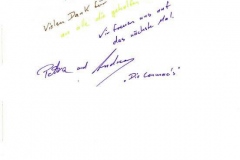 Vielen Dank für
an alle, die geholfen
Wir freuen uns auf
das nächste Mal
Petra und Andreas
"Die